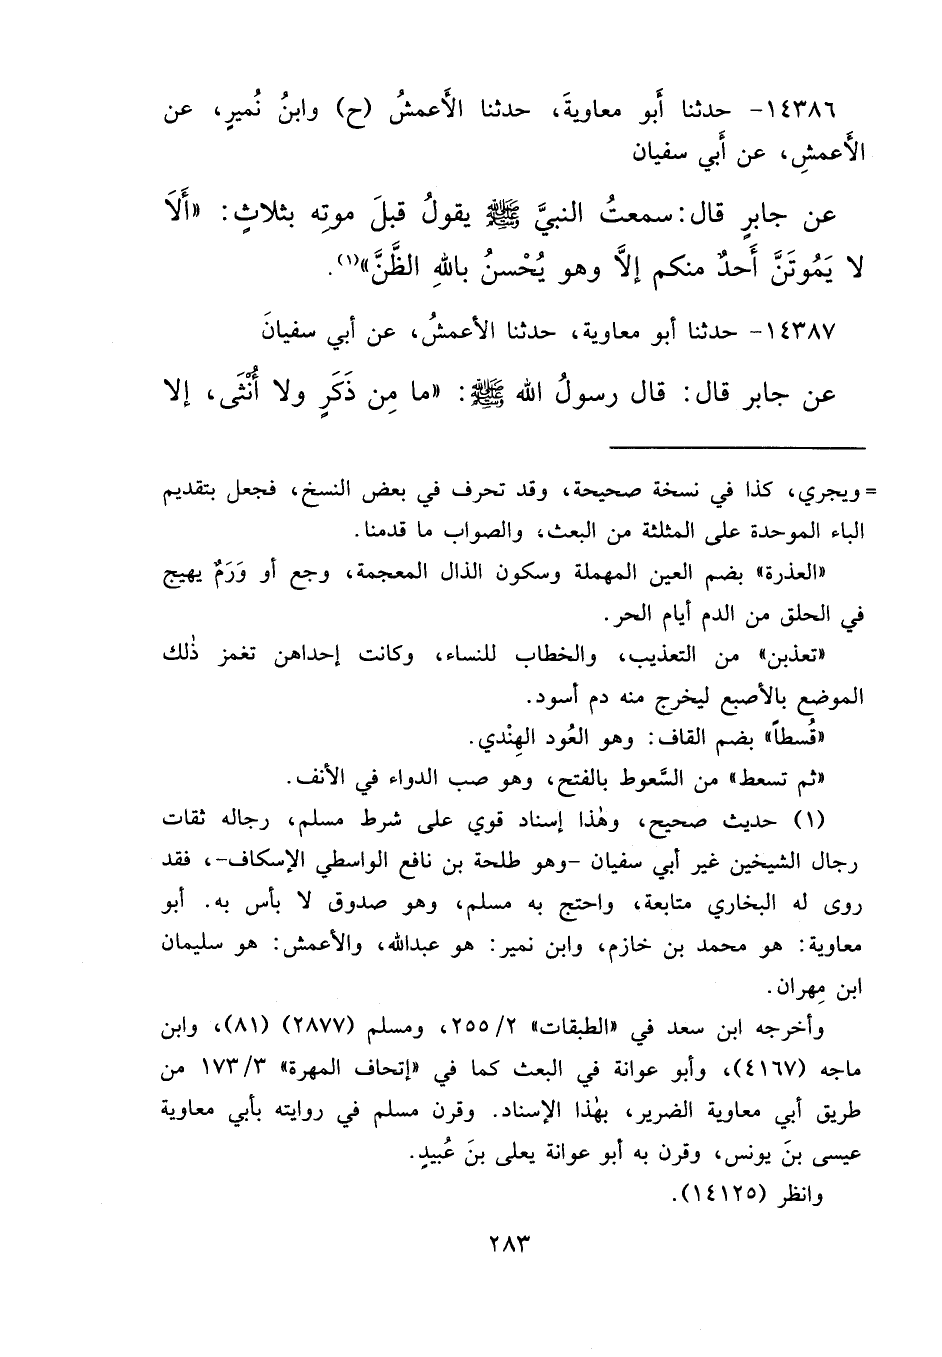 ١٤٣٨٦- حدثنا أَبو معاويةَ، حدثنا الأَعمشُ (ح) وابنُ نُميرٍ، عن
الأَعمشِ، عن أَبي سفيان
عن جابرٍ قال: سمعتُ النبيَّ ﷺ يقولُ قبلَ موتِه بثلاثٍ: «أَلَا
لا يَمُوتَنَّ أَحدٌ منكم إلَّا وهو يُحْسنُ باللهِ الظَّنَّ»(١).
١٤٣٨٧- حدثنا أبو معاوية، حدثنا الأعمشُ، عن أبي سفيانَ
عن جابر قال: قال رسولُ الله ﷺ: «ما مِن ذَكَرٍ ولا أُنْثَى، إلا
= ويجري، كذا في نسخة صحيحة، وقد تحرف في بعض النسخ، فجعل بتقديم
الباء الموحدة على المثلثة من البعث، والصواب ما قدمنا.
«العذرة» بضم العين المهملة وسكون الذال المعجمة، وجع أو وَرَمٌ يهيج
في الحلق من الدم أيام الحر.
«تعذبن» من التعذيب، والخطاب للنساء، وكانت إحداهن تغمز ذٰلك
الموضع بالأصبع ليخرج منه دم أسود.
«قُسطاً» بضم القاف: وهو العُود الهِنْدي.
«ثم تسعط» من السَّعوط بالفتح، وهو صب الدواء في الأنف.
(١) حديث صحيح، وهٰذا إسناد قوي على شرط مسلم، رجاله ثقات
رجال الشيخين غير أبي سفيان -وهو طلحة بن نافع الواسطي الإسكاف-، فقد
روى له البخاري متابعة، واحتج به مسلم، وهو صدوق لا بأس به. أبو
معاوية: هو محمد بن خازم، وابن نمير: هو عبدالله، والأعمش: هو سليمان
ابن مِهران.
وأخرجه ابن سعد في «الطبقات» ٢/ ٢٥٥، ومسلم (٢٨٧٧) (٨١)، وابن
ماجه (٤١٦٧)، وأبو عوانة في البعث كما في «إتحاف المهرة» ٣/ ١٧٣ من
طريق أبي معاوية الضرير، بهٰذا الإسناد. وقرن مسلم في روايته بأبي معاوية
عيسى بنَ يونس، وقرن به أبو عوانة يعلى بنَ عُبيدٍ.
وانظر (١٤١٢٥).
٢٨٣